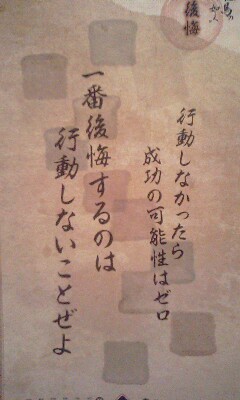 後悔
行動しなかったら
成功の可能性はゼロ
一番後悔するのは
行動しないことぜよ